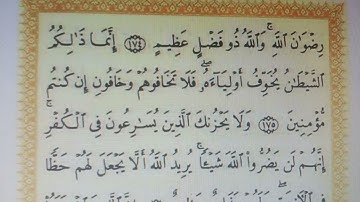 رِضْوَٰنَ ٱللَّهِ ۗ وَٱللَّهُ ذُو فَضْلٍ عَظِيمٍ ﴿١٧٤﴾ إِنَّمَا ذَٰلِكُمُ
ٱلشَّيْطَٰنُ يُخَوِّفُ أَوْلِيَآءَهُۥ ۖ فَلَا تَخَافُوهُمْ وَخَافُونِ إِن كُنتُم
مُّؤْمِنِينَ ﴿١٧٥﴾ وَلَا يَحْزُنكَ ٱلَّذِينَ يُسَٰرِعُونَ فِى ٱلْكُفْرِ ۚ
إِنَّهُمْ لَن يَضُرُّوا۟ ٱللَّهَ شَيْـًٔا ۗ يُرِيدُ ٱللَّهُ أَلَّا يَجْعَلَ لَهُمْ حَظًّا